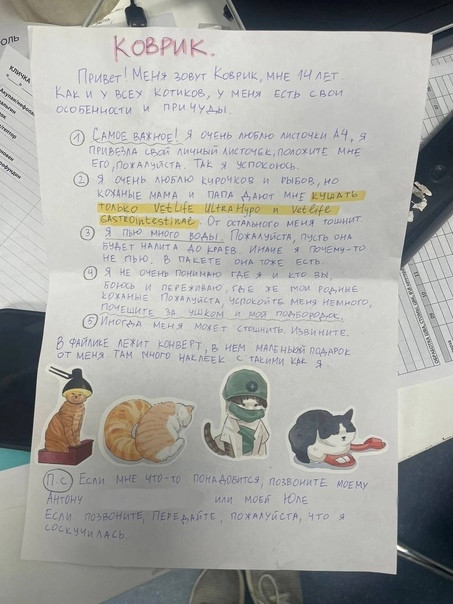 КОВРИК.
ПРИВЕТ! МЕНЯ ЗОВУТ КОВРИК, МНЕ 14 ЛЕТ.
КАК И У ВСЕХ КОТИКОВ, У МЕНЯ ЕСТЬ СВОИ
ОСОБЕННОСТИ И ПРИЧУДЫ.
1 САМОЕ ВАЖНОЕ! Я ОЧЕНЬ ЛЮБЛЮ ЛИСТОЧКИ А4, Я
ПРИВЕЗЛА СВОЙ ЛИЧНЫЙ ЛИСТОЧЕК, ПОЛОЖИТЕ МНЕ
ЕГО, ПОЖАЛУЙСТА, ТАК Я УСПОКОЮСЬ.
2 Я ОЧЕНЬ ЛЮБЛЮ КУРОЧКОВ И РЫБОВ, НО
КОХАНЫЕ МАМА И ПАПА ДАЮТ МНЕ КУШАТЬ
ТОЛЬКО VetLife UltraHypo И Vetlife
GASTROintestinal. ОТ ОСТАЛЬНОГО МЕНЯ ТОШНИТ.
3 Я ПЬЮ МНОГО ВОДЫ. ПОЖАЛУЙСТА, ПУСТЬ ОНА
БУДЕТ НАЛИТА ДО КРАЕВ. ИНАЧЕ Я ПОЧЕМУ-ТО
НЕ ПЬЮ. В ПАКЕТЕ ОНА ТОЖЕ ЕСТЬ.
4 Я НЕ ОЧЕНЬ ПОНИМАЮ ГДЕ Я И КТО ВЫ,
БОЮСЬ И ПЕРЕЖИВАЮ, ГДЕ ЖЕ МОИ РОДНЫЕ
КОХАНЫЕ. ПОЖАЛУЙСТА, УСПОКОЙТЕ МЕНЯ НЕМНОГО,
ПОЧЕШИТЕ ЗА УШКОМ И МОЙ ПОДБОРОДОК.
5 ИНОГДА МЕНЯ МОЖЕТ СТОШНИТЬ. ИЗВИНИТЕ.
В ФАЙЛИКЕ ЛЕЖИТ КОНВЕРТ, В НЕМ МАЛЕНЬКИЙ ПОДАРОК
ОТ МЕНЯ. ТАМ МНОГО НАКЛЕЕК С ТАКИМИ КАК Я.
П.С ЕСЛИ МНЕ ЧТО-ТО ПОНАДОБИТСЯ, ПОЗВОНИТЕ МОЕМУ
АНТОНУ ИЛИ МОЕЙ ЮЛЕ
ЕСЛИ ПОЗВОНИТЕ, ПЕРЕДАЙТЕ, ПОЖАЛУЙСТА, ЧТО Я
СОСКУЧИЛАСЬ.
КЛИЧКА